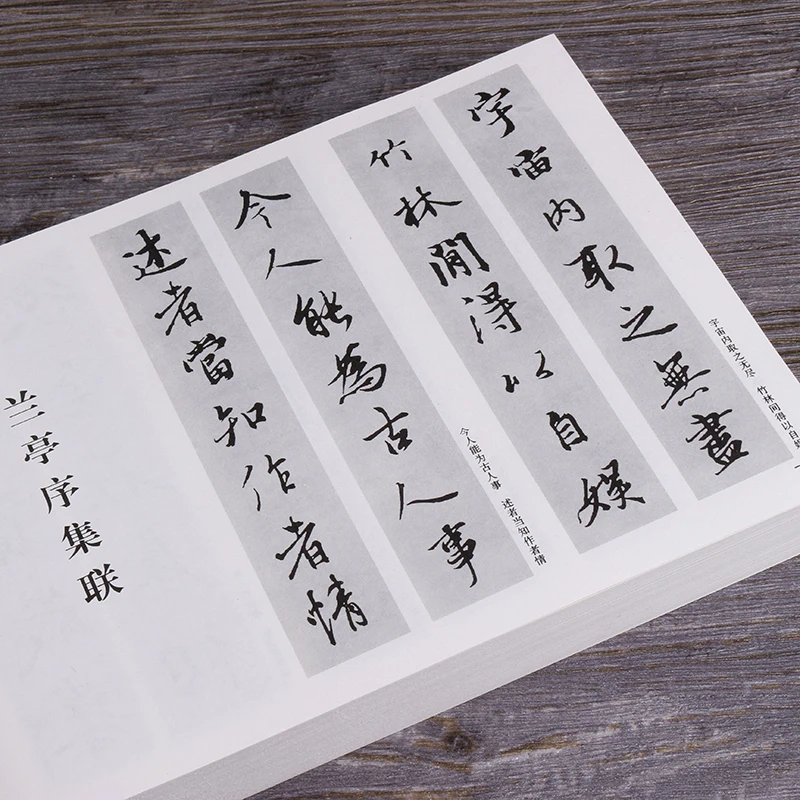 宇宙内取之無盡
竹林間得以自娱
宇宙内取之无尽　竹林间得以自
今人能為古人事
述者當知作者情
今人能为古人事　述者当知作者情
兰亭序集联